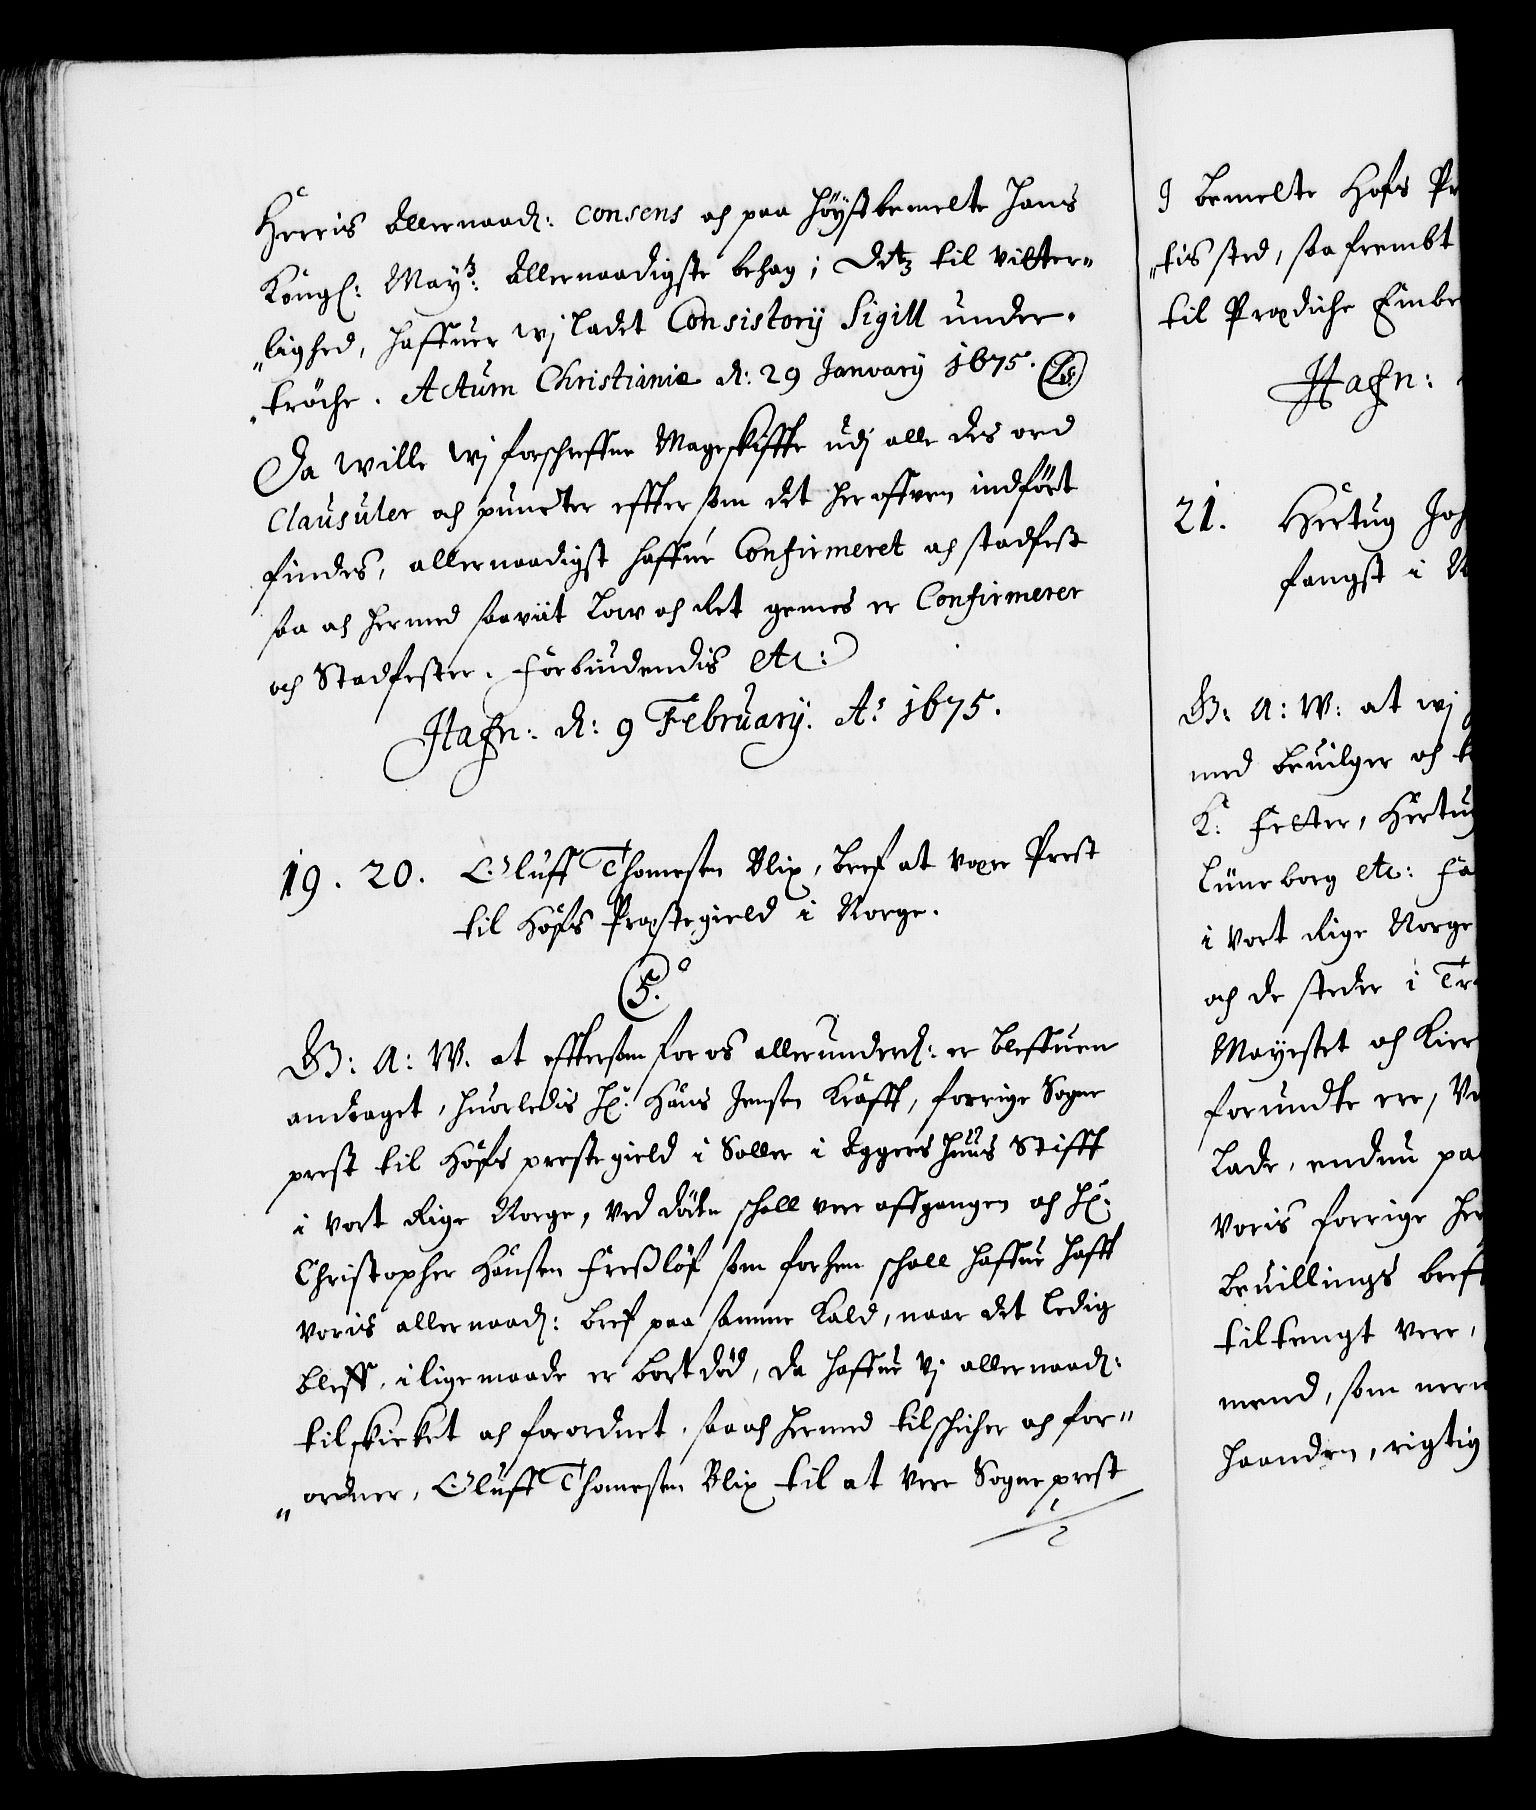 Herris allernaad: consens och paa höystbemelte Hans
Kongl: May:tz allernaadigste behag; Detz til vitter„
„lighed, haffuer wj ladet Consistorij Sigill under„
„tröche. Actum Christianiæ d: 29 January 1675. (LS)
Da wille wj forschreffne Mageskiffte udj alle des ord
Clausuler och puncter effter som det her offven indfört
findes, allernaadigst haffue Confirmeret och stadfest
saa och hermed saaviit Low och Ret gemes er Confirmerer
och Stadfester. Forbiudendis etc:
Hafn: d: 9 February. Ao 1675.
19. 20. Oluff Thomesen Blix, bref at være Prest
til Höfs Præstegield i Norge.
C5.
G: A: W. at efftersom for os allerunderd: er bleffuen
andraget, huorledis Hr: Hans Jensen Krafft, forrige Sogne
prest til Höfs prestegield i Soller i Aggers Huus Stifft
i vort Rige Norge, ved döden schall vere affgangen och Hr:
Christopher Hansen Freßlöf som forhen schall haffue hafft
voris allernaad: bref paa samme Kald, naar det ledig
bleff, i lige maade er bort död, da haffue vj allernaad:
tilskicket och forordnet, saa och hermed tilschicher och for„
„ordner, Oluff Thomesen Blix til at vere Sogneprest
J bemelte Hofs Pr
„tis sted, saa frembt
til Prædiche Embe
Hafn:
21. Hertug Joh
fangst i N
G: A: W: at wj
med beuilger och t
K: Fetter, Hertug
Lüneborg etc: Fa
i vort Rige Norge
och de steder i Tr
Mayestet och Kier
forundte ere, Ve
Lade, endnu paa
voris forrige her
beuillings breff
tiltengt vere,
mend, som nern
haanden, rigtig